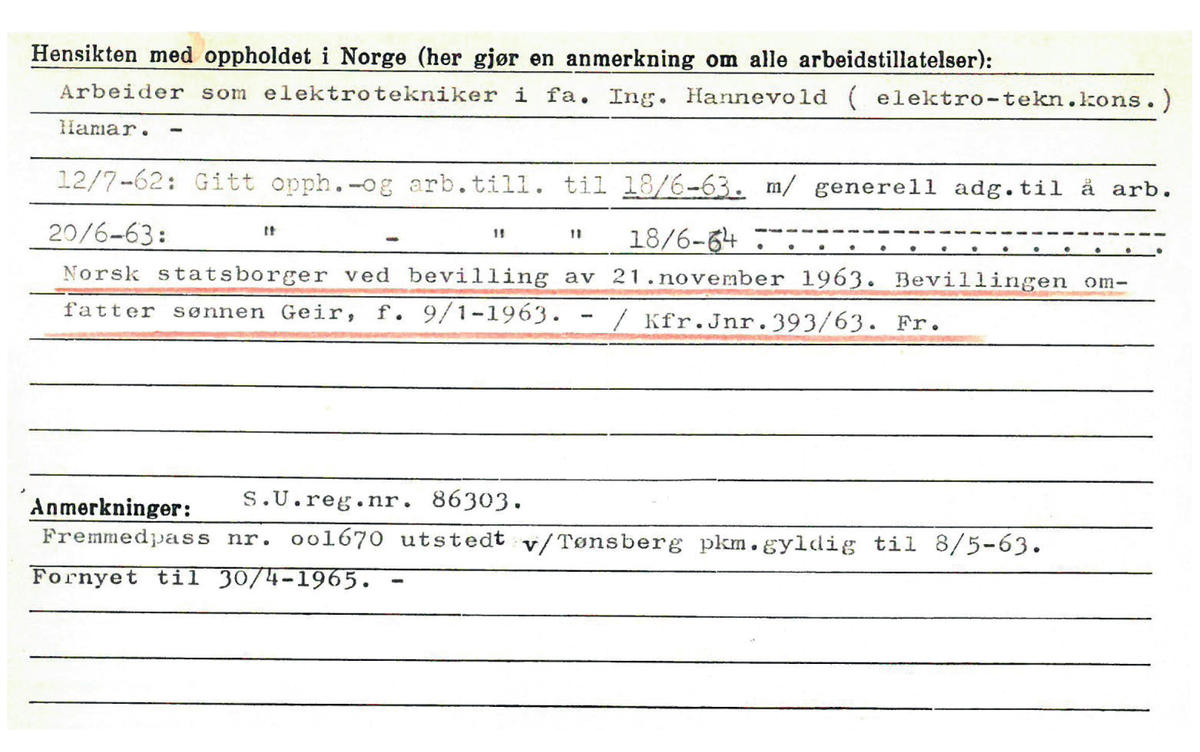 Hensikten med oppholdet i Norge (her gjør en anmerkning om alle arbeidstillatelser):
Arbeider som elektrotekniker i fa. Ing. Hannevold ( elektro-tekn.kons.)
Hamar. -
12/7-62: Gitt opph.-og arb.till. til 18/6-63. m/ generell adg.til å arb.
20/6-63: " - " " 18/6-64 --------------------------------
. . . . . . . . . . . . . .
Norsk statsborger ved bevilling av 21.november 1963. Bevillingen om-
fatter sønnen Geir, f. 9/1-1963. - / Kfr.Jnr.393/63. Fr.
Anmerkninger: S.U.reg.nr. 86303.
Fremmedpass nr. oo1670 utstedt v/Tønsberg pkm.gyldig til 8/5-63.
Fornyet til 30/4-1965. -